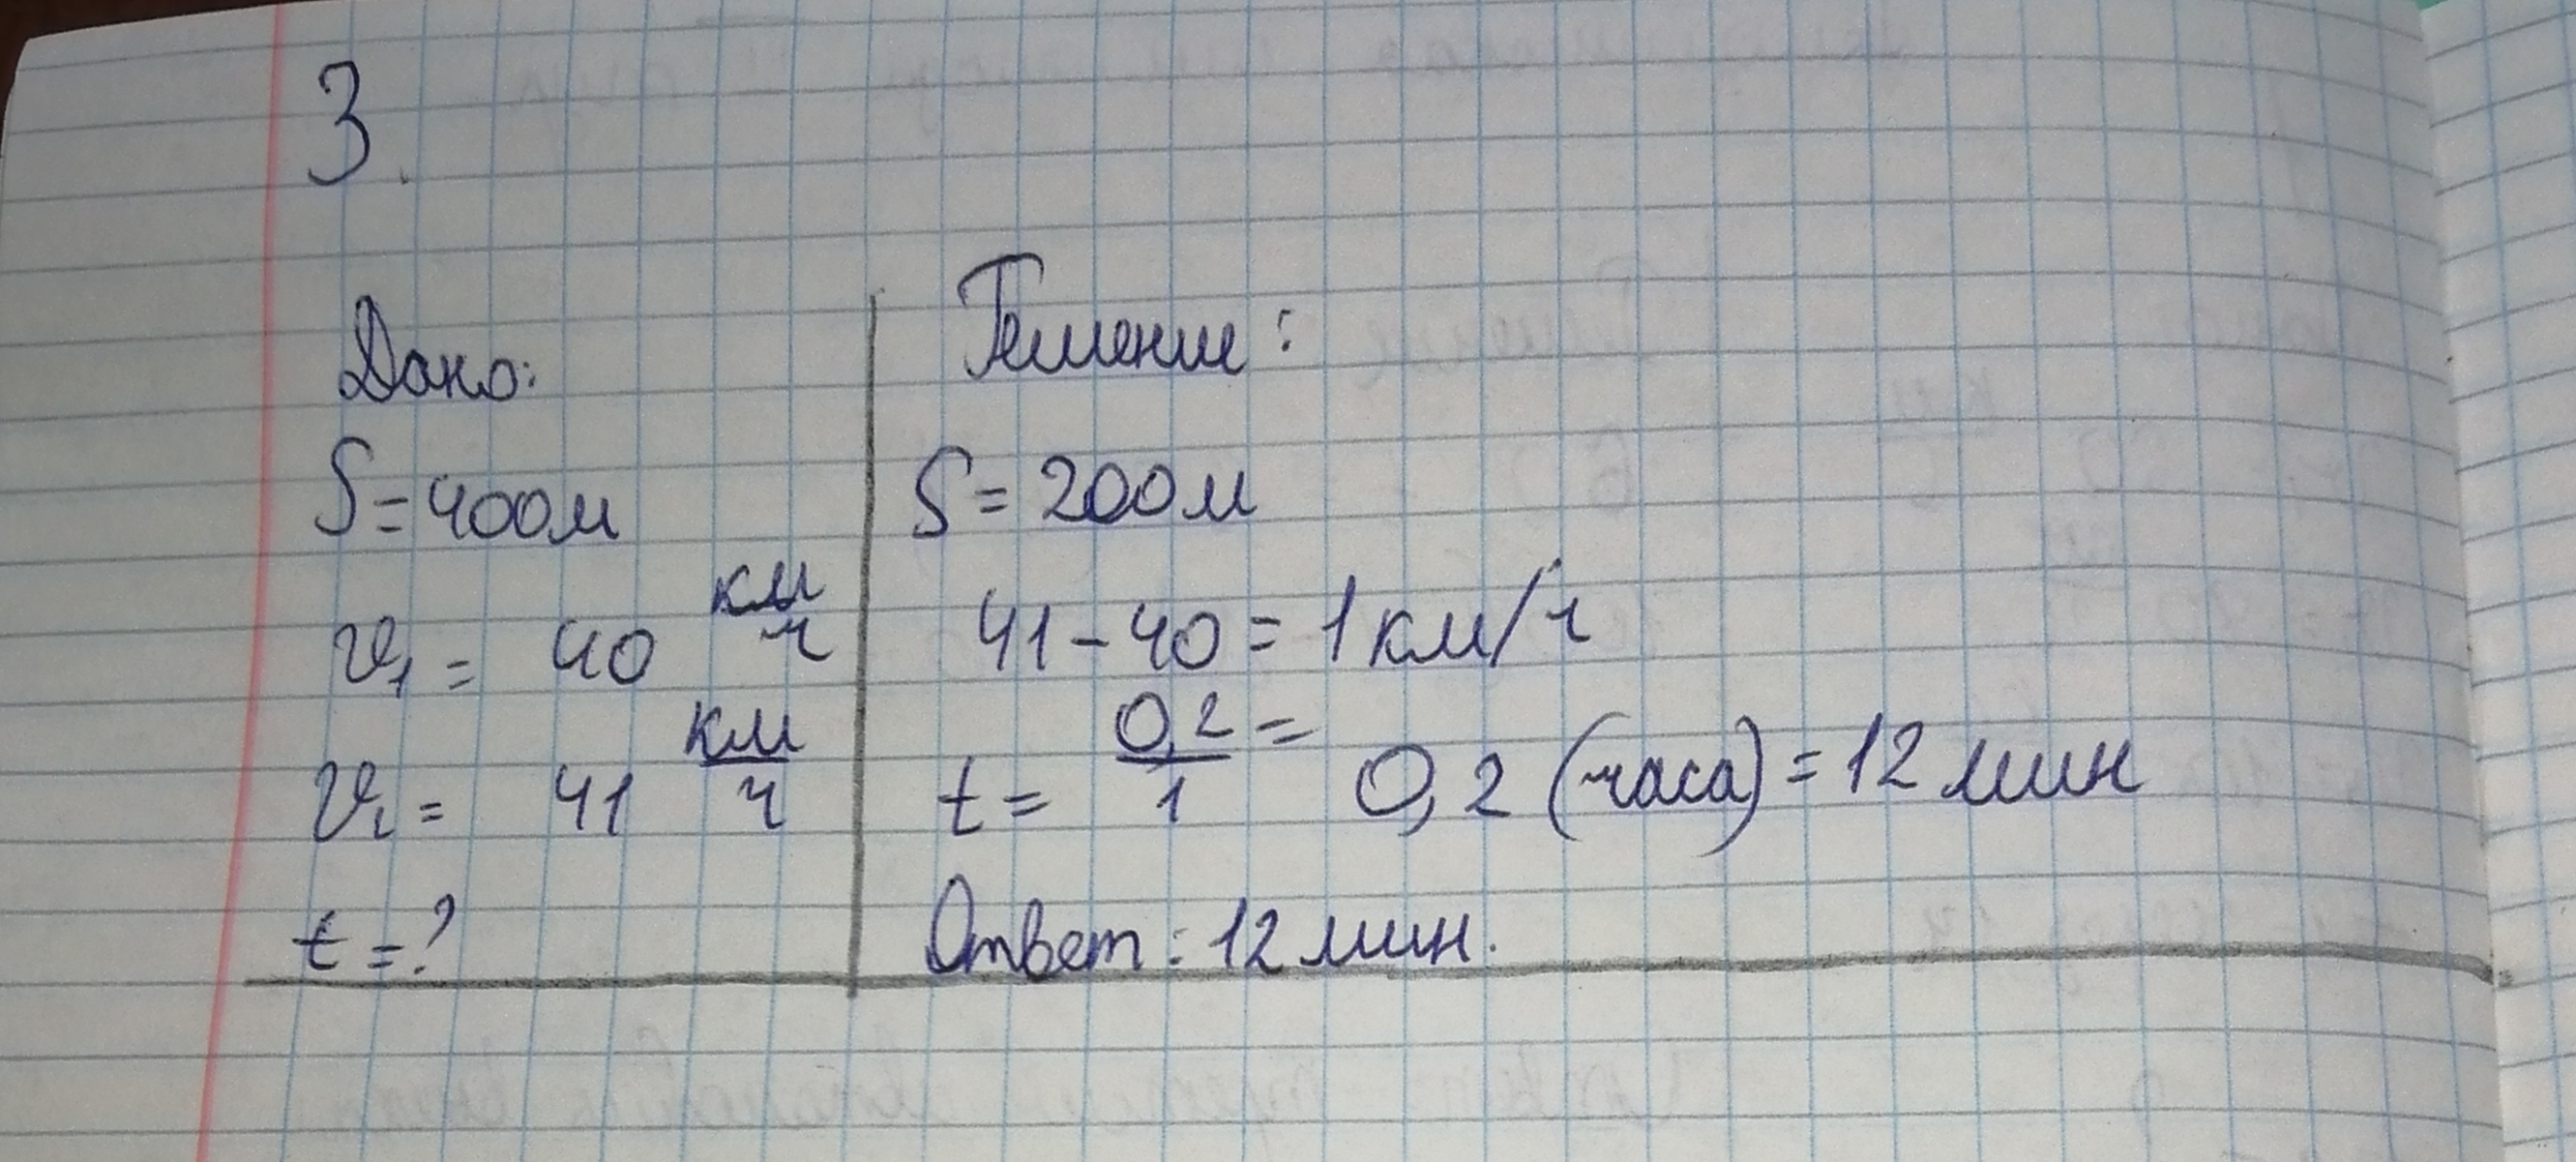 3.
Дано:
S = 400м
v₁ = 40 км/ч
v₂ = 41 км/ч
t = ?
Решение:
S = 200м
41 - 40 = 1 км/ч
t = 0,2/1 = 0,2 (часа) = 12 мин
Ответ: 12 мин.